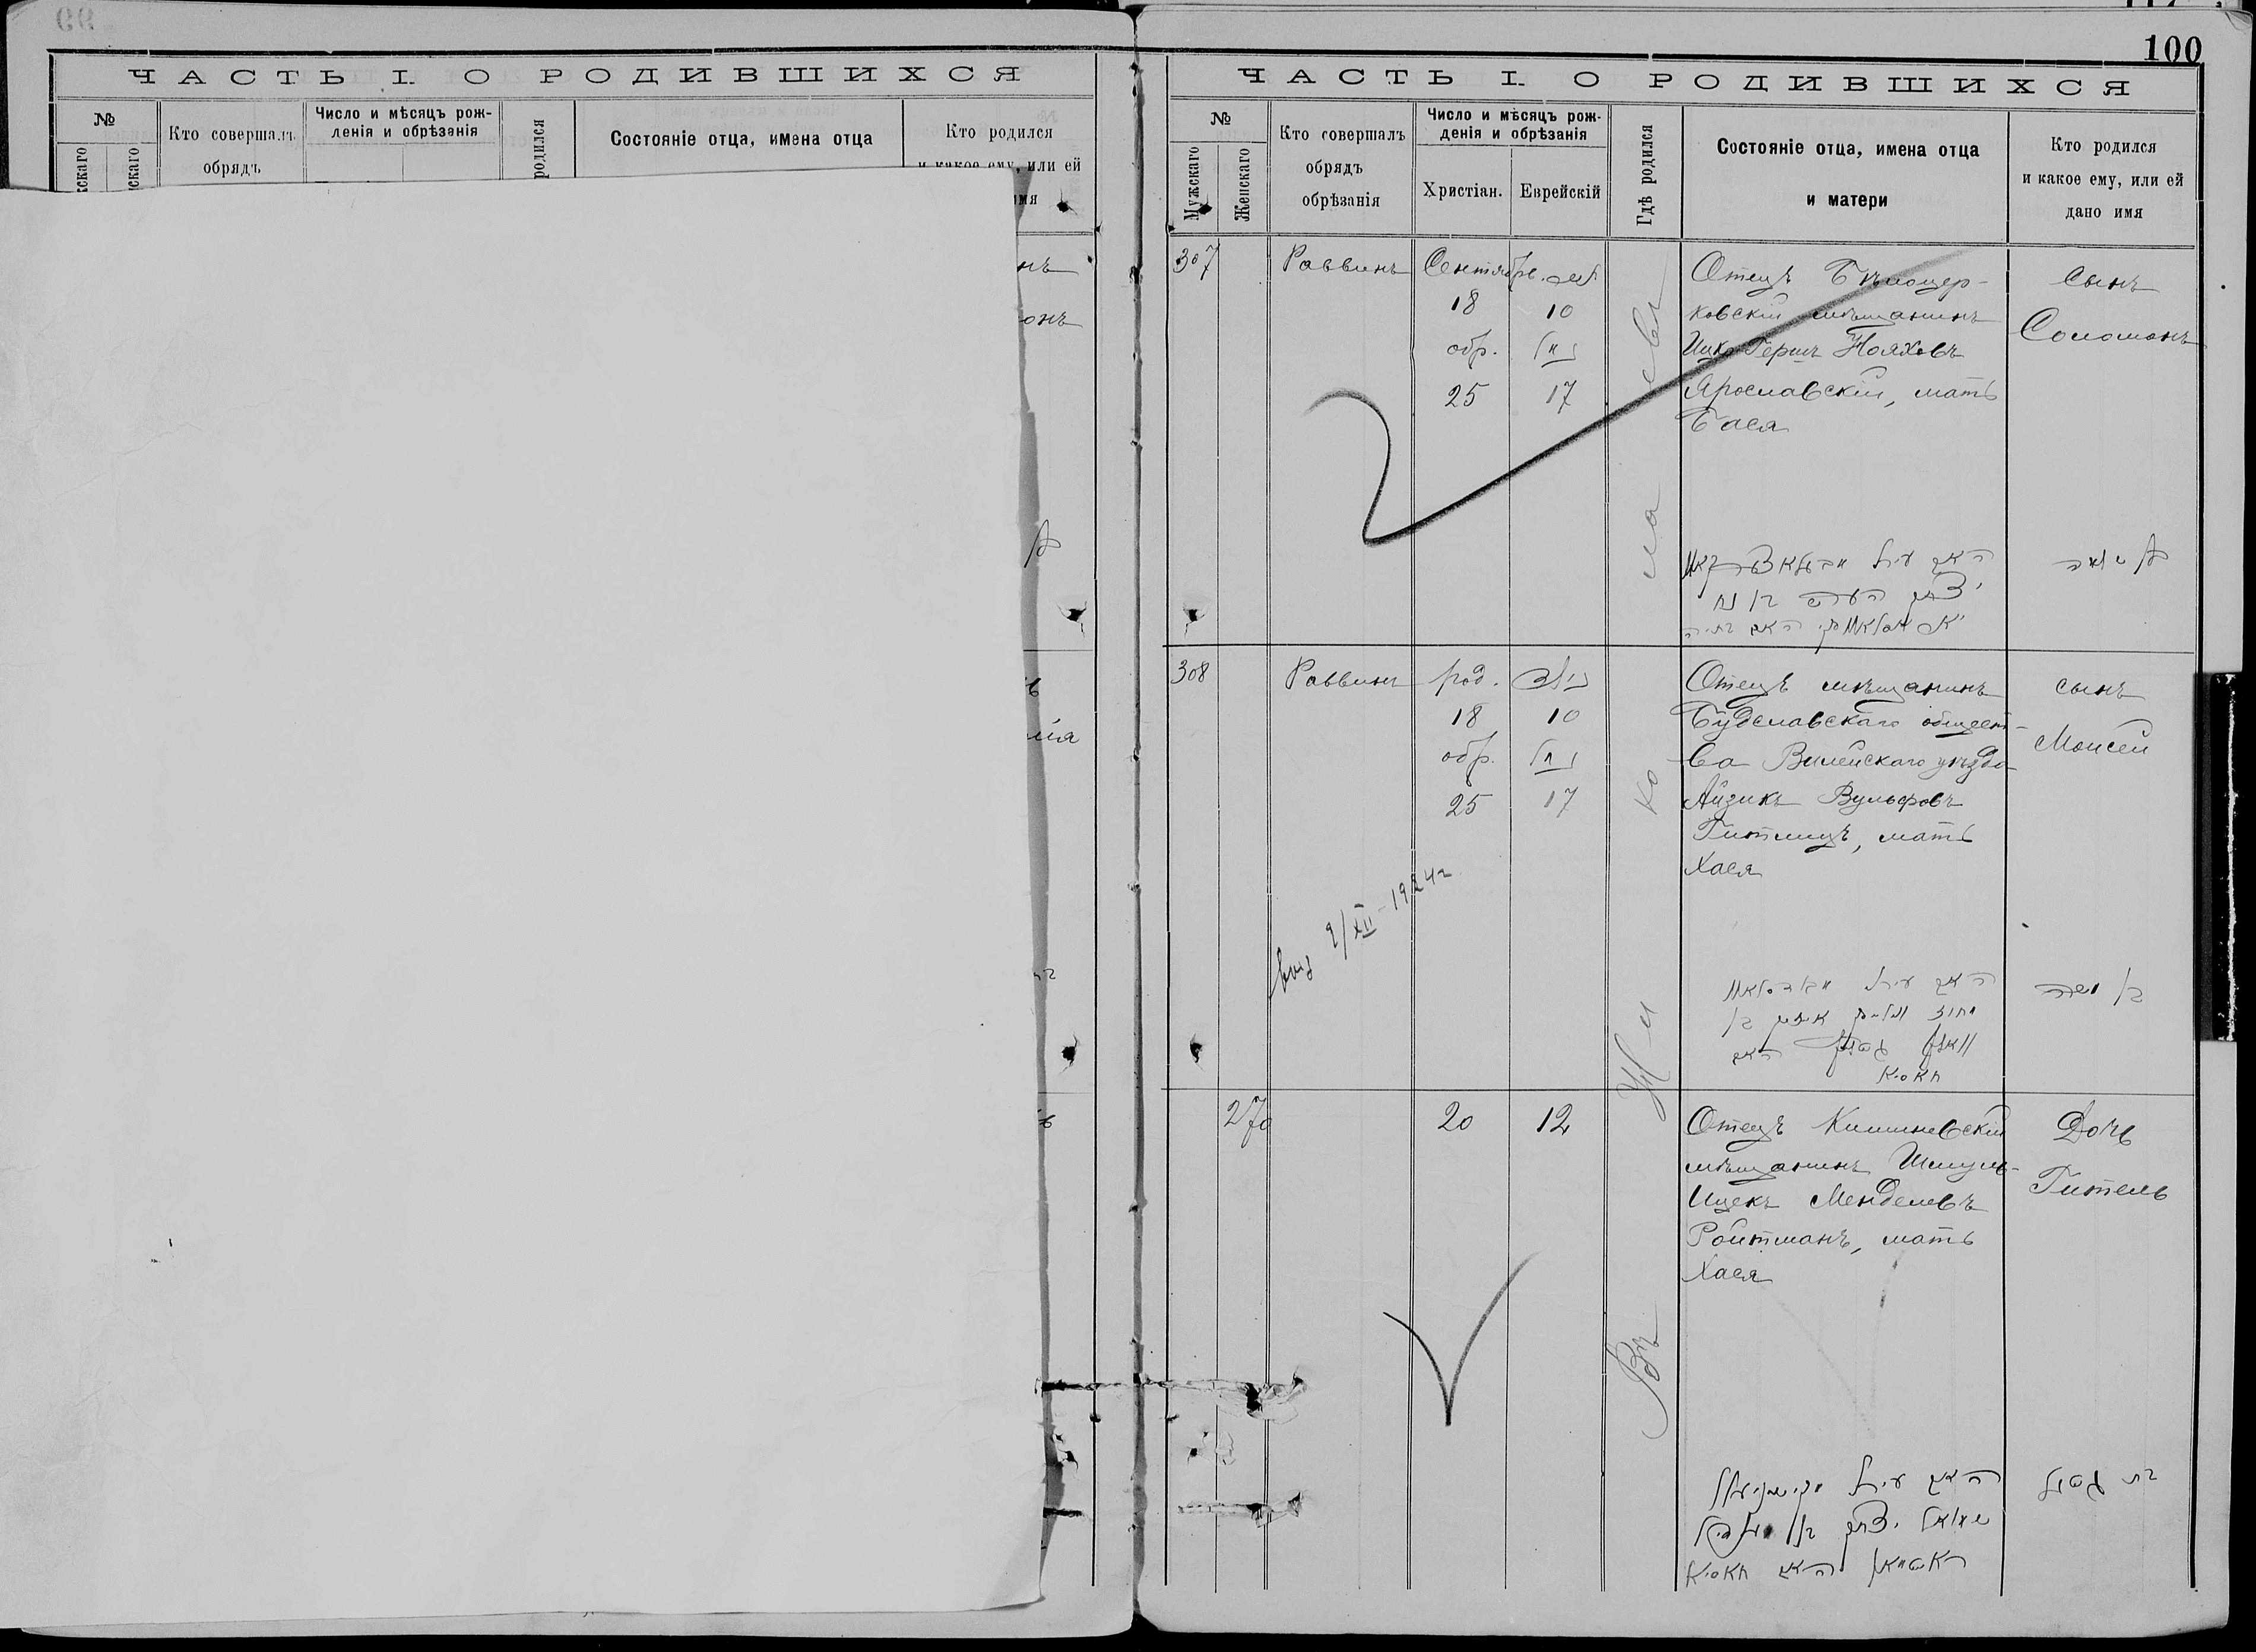 99
ЧАСТЬ I. О РОДИВШИХСЯ
№
Кто совершалъ
обрядъ
Число и мѣсяцъ рож-
денія и обрѣзанія
родился
Состояніе отца, имена отца
Кто родился
и какое ему, или ей
100
ЧАСТЬ I. О РОДИВШИХСЯ
№
Мужскаго
Женскаго
Кто совершалъ
обрядъ
обрѣзанія
Число и мѣсяцъ рож-
денія и обрѣзанія
Христіан.
Еврейскій
Гдѣ родился
Состояніе отца, имена отца
и матери
Кто родился
и какое ему, или ей
дано имя
307
Раввинъ
Сентябрь
18 10
обр.
25 17
Отецъ Бѣлоцер-
ковскій мѣщанинъ
Ицко-Гершъ Нояховъ
Ярославскій, мать
Бася
сынъ
Соломонъ
יצחק הערש בן נח
308
Раввинъ
род.
18 10
обр.
25 17
Отецъ мѣщанинъ
Будславскаго общест-
ва Вилейскаго уѣзда
Айзикъ Вульфовъ
Гитлицъ, мать
Хася
сынъ
Моисей
בן משה
חאסיא
выд 2/XII-1924 г
270
20 12
Отецъ Кишиневскій
мѣщанинъ Шмуль-
Ицекъ Менделевъ
Ройтманъ, мать
Хася
Дочь
Гитель
שמואל יצחק בן מענדיל
ראטמאן האם חאסיא
Въ Николаевѣ